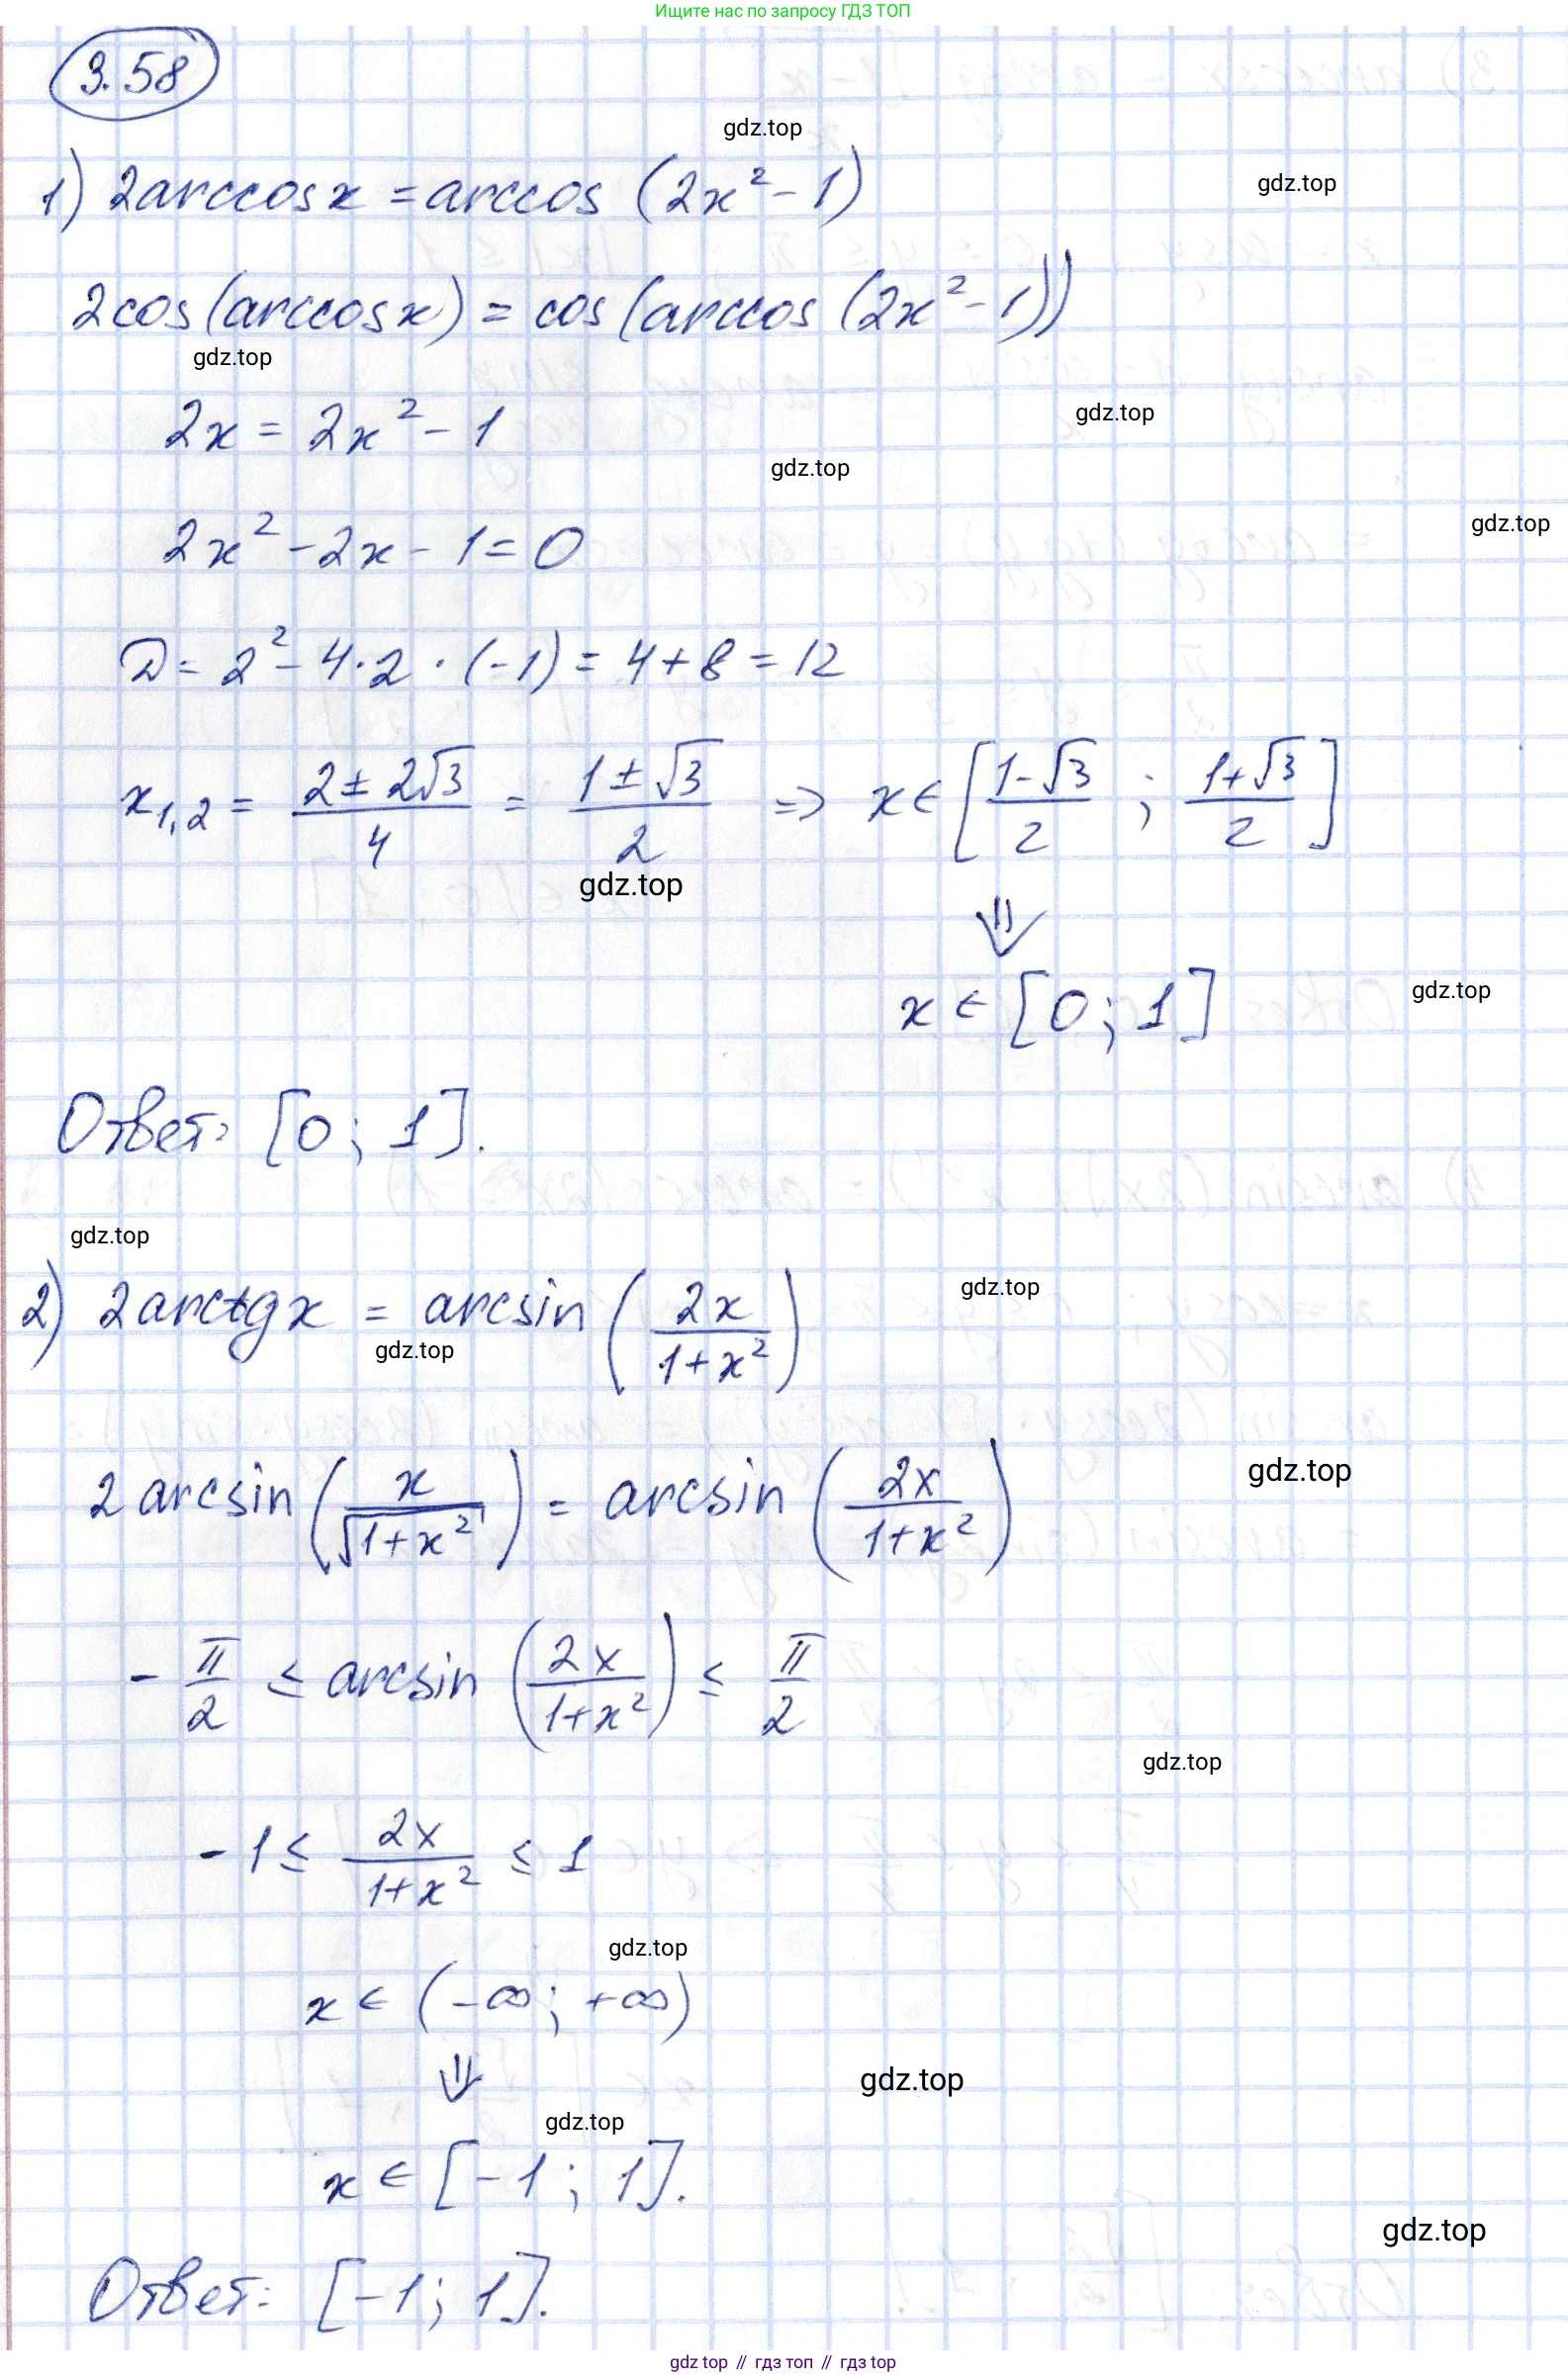 Ищите нас по запросу ГДЗ ТОП
3.58
gdz.top
1) 2arccosx = arccos (2x² - 1)
gdz.top
2cos(arccosx) = cos(arccos(2x² - 1))
gdz.top
2x = 2x² - 1
gdz.top
gdz.top
gdz.top
2x² - 2x - 1 = 0
D = 2² - 4·2·(-1) = 4 + 8 = 12
x₁,₂ = (2 ± 2√3)/4 = (1 ± √3)/2 ⇒ x ∈ [(1-√3)/2 ; (1+√3)/2]
gdz.top
⇓
x ∈ [0; 1]
gdz.top
Ответ: [0; 1].
gdz.top
2) 2arctgx = arcsin (2x/(1+x²))
gdz.top
gdz.top
2arcsin (x/√(1+x²)) = arcsin (2x/(1+x²))
gdz.top
-π/2 ≤ arcsin (2x/(1+x²)) ≤ π/2
gdz.top
-1 ≤ 2x/(1+x²) ≤ 1
gdz.top
x ∈ (-∞; +∞)
⇓
gdz.top
gdz.top
x ∈ [-1; 1].
gdz.top
Ответ: [-1; 1].
gdz top // гдз топ // гдз top